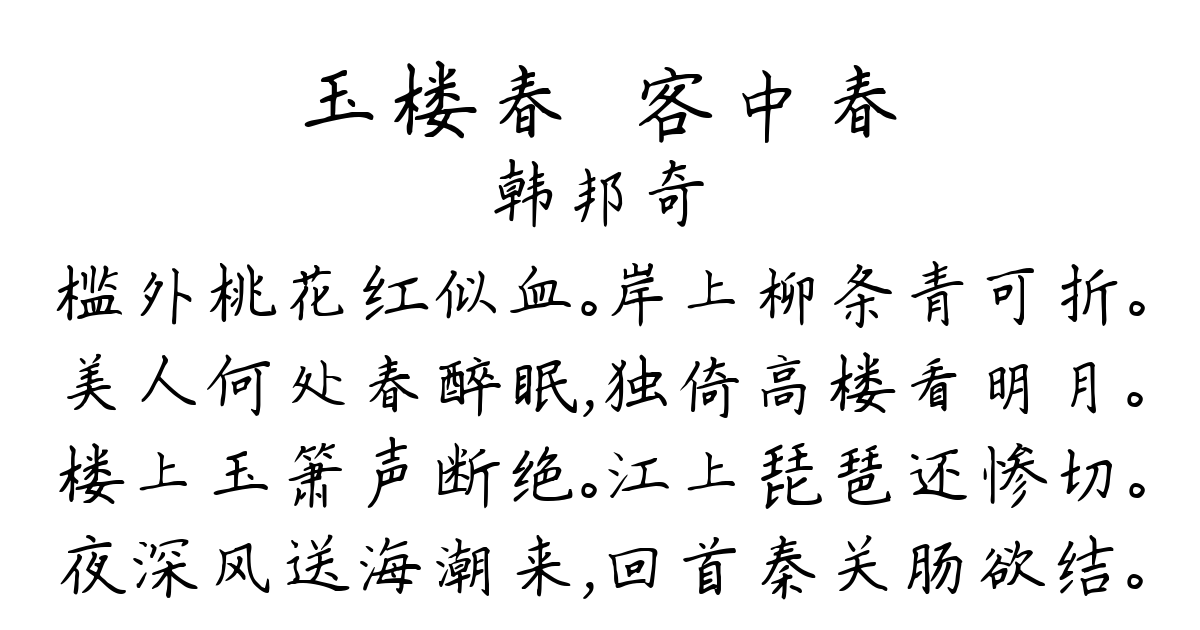 玉楼春 客中春
韩邦奇
槛外桃花红似血。岸上柳条青可折。
美人何处春醉眠,独倚高楼看明月。
楼上玉箫声断绝。江上琵琶还惨切。
夜深风送海潮来,回首秦关肠欲结。